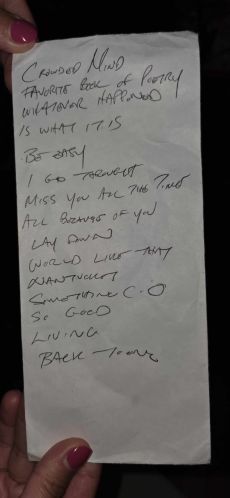 CROWDED MIND
FAVORITE BOOK OF POETRY
WHATEVER HAPPENED
IS WHAT IT IS
BE EASY
I GO THROUGHT
MISS YOU ALL THE TIME
ALL BECAUSE OF YOU
LAY DOWN
WORLD LIKE THAT
NANTUCKET
SOMETHING C.O
SO GOOD
LIVING
BACK